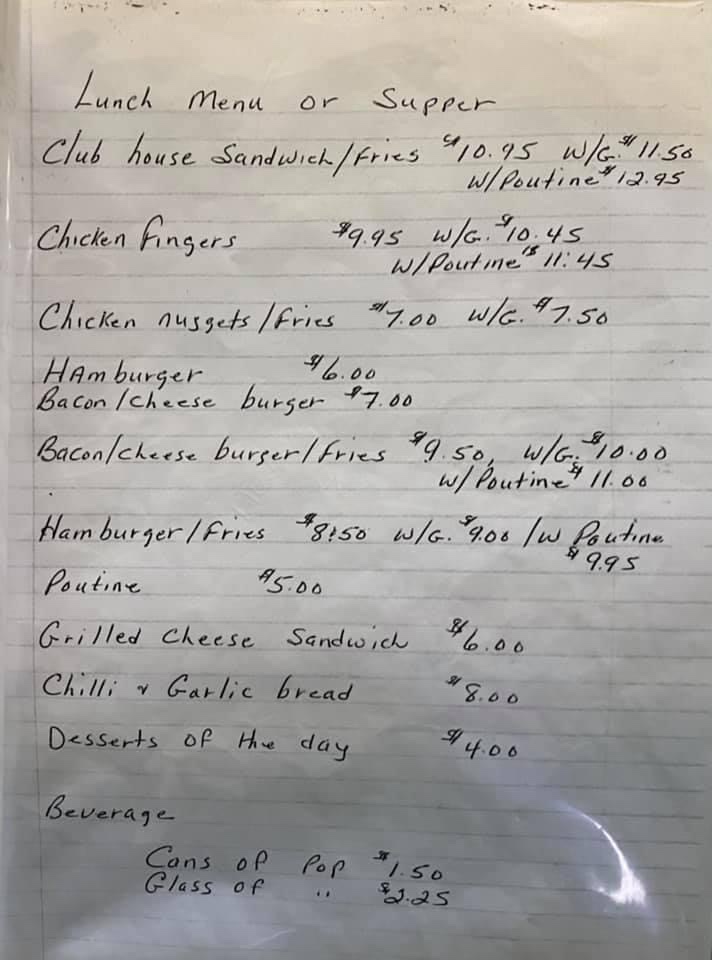 Lunch Menu or Supper
Club house Sandwich/fries $10.95 w/G. $11.50
w/Poutine $12.95
Chicken fingers $9.95 w/G. $10.45
w/Poutine $11:45
Chicken nuggets/fries $7.00 w/G. $7.50
HAmburger $6.00
Bacon/cheese burger $7.00
Bacon/cheese burger/fries $9.50, w/G. $10.00
w/Poutine $11.00
Hamburger/fries $8:50 w/G. $9.00 /w Poutine
$9.95
Poutine $5.00
Grilled cheese Sandwich $6.00
Chilli & Garlic bread $8.00
Desserts of the day $4.00
Beverage
Cans of Pop $1.50
Glass of " $2.25